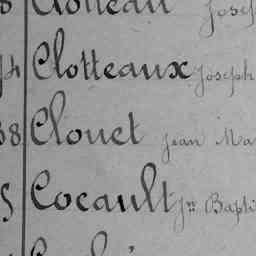 Clotteau Josep
74 Clotteaux Joseph
38 Clouet Jean Ma
5 Cocault Jn Bapti